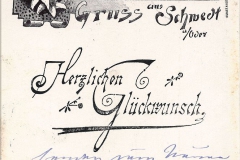 Gruss aus Schwedt
a/Oder
Herzlichen
Glückwunsch.